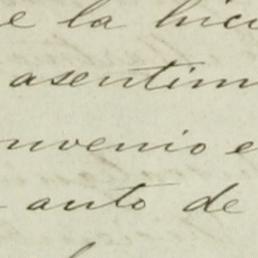 e la hici
asentim
nvenio e
auto de